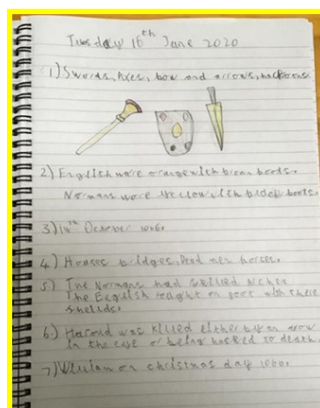 Tuesday 16th June 2020
1) Swords, Axes, bow and arrows,
2) English wore orange with brown boots.
Normans wore yellow with black boots.
3) 14th October 1066.
4) Houses bridges, Dead men horses.
5) The Normans had skilled
The English fought on foot with their
sheilds.
6) Harold was killed either by an arrow
in the eye or being hacked to death.
7) on christmas day 1066.